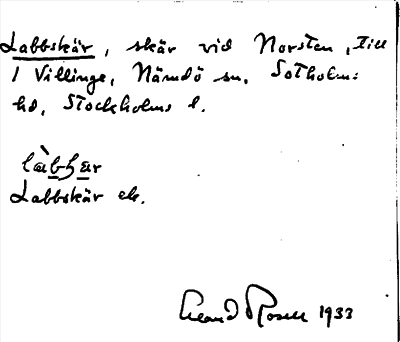 Labbskär, skär vid Norsten, till
1 Villinge, Nämdö sn, Sotholms
hd, Stockholms l.
làbʃär
Labbskär ek.
Rosell 1933